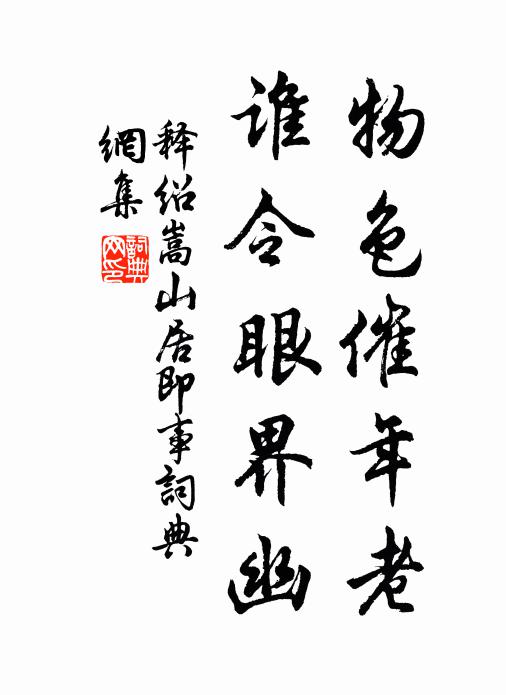 物色催年老
谁令眼界幽
释绍嵩山居即事词典
網集
詞典网印